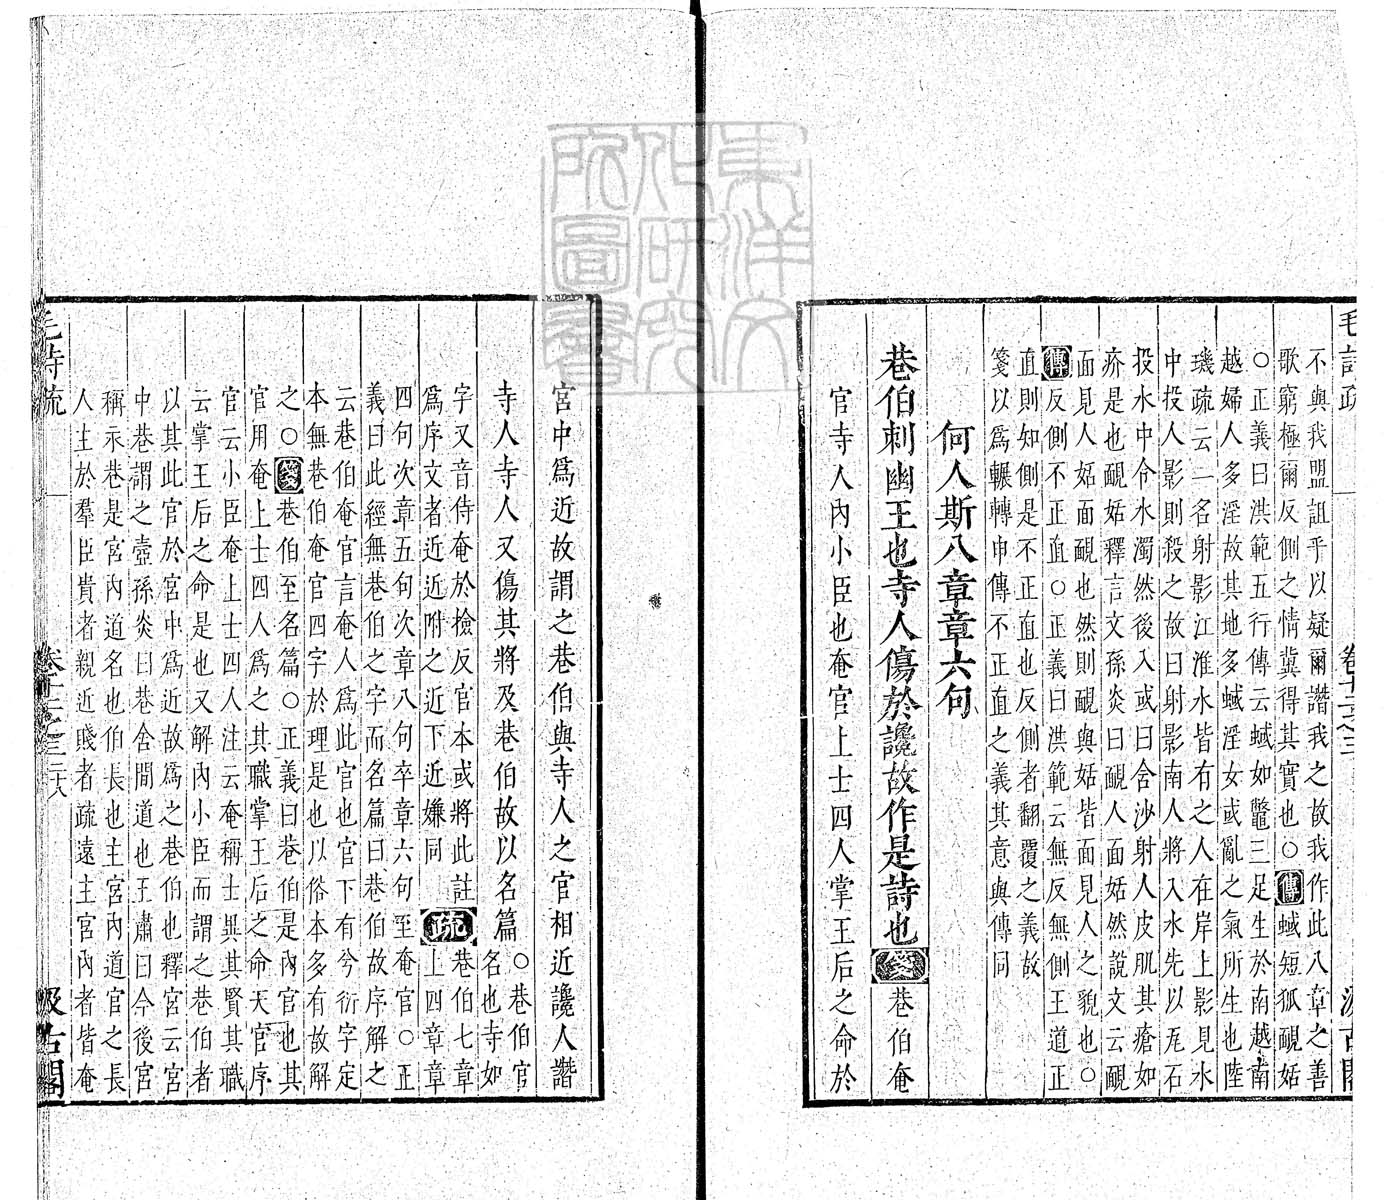 毛詩疏
卷十二之三
汲古閣
不與我盟詛乎以疑爾譖我之故我作此八章之善
歌窮極爾反側之情冀得其實也○傳蜮短狐靦姡
○正義曰洪範五行傳云蜮如鼈三足生於南越南
越婦人多淫故其地多蜮淫女或亂之氣所生也陸
璣疏云一名射影江淮水皆有之人在岸上影見水
中投人影則殺之故曰射影南人將入水先以瓦石
投水中令水濁然後入或曰含沙射人皮肌其瘡如
疥是也靦姑釋言文孫炎曰靦人面姑然說文云靦
面見人姑面靦也然則靦與姑皆面見人之貌也○
傳反側不正直○正義曰洪範云無反無側王道正
直則知側是不正直也反側者翻覆之義故
箋以為輾轉申傳不正直之義其意與傳同
何人斯八章章六句
巷伯刺幽王也寺人傷於讒故作是詩也箋巷伯奄
官寺人內小臣也奄官上士四人掌王后之命於
宮中為近故謂之巷伯與寺人之官相近讒人譖
寺人寺人又傷其將及巷伯故以名篇○巷伯官
名也寺如
字又音侍奄於檢反官本或將此註
為序文者近近附之近下近嫌同疏巷伯七章
上四章章
四句次章五句次章八句卒章六句至奄官○正
義曰此經無巷伯之字而名篇曰巷伯故序解之
云巷伯奄官言奄人為此官也官下有兮衍字定
本無巷伯奄官四字於理是也以俗本多有故解
之○箋巷伯至名篇○正義曰巷伯是內官也其
官用奄上士四人為之其職掌王后之命天官序
官云小臣奄上士四人注云奄稱士異其賢其職
云掌王后之命是也又解內小臣而謂之巷伯者
以其此官於宮中為近故為之巷伯也釋宮云宮
中巷謂之壼孫炎曰巷舍間道也王肅曰今後宮
稱永巷是宮內道名也伯長也主宮內道官之長
人主於羣臣貴者親近賤者疏遠主宮內者皆奄
毛詩疏
卷十二之三
二十八
汲古閣